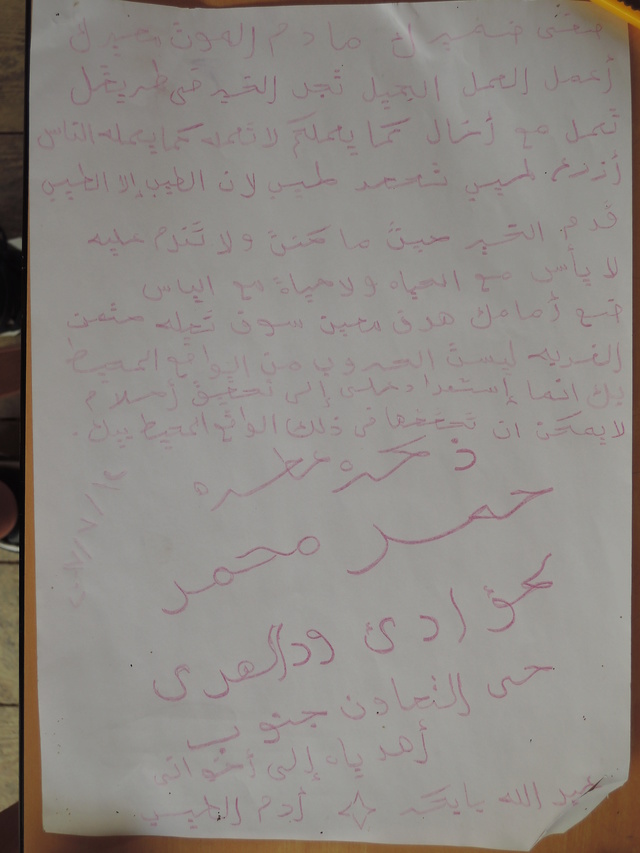 ما دم الموت
أعمل العمل الجميل تجد الخير في طريقك
تعمل مع أنزال كما يعملك لا تعمله كما يعمله الناس
أزرع طيب تحصد طيب لان الطيب إلا الطيب
قدم الخير حيث ما كنت ولا تندم عليه
لا يأس مع الحياه ولا حياة مع الياس
ضع أمامك هدف معين سوف تجله
الغربه ليست الهروب من الواقع المحيط
بك انما إستعداد إلى تحقيق أحلام
لا يمكن ان تحققها في ذلك الواقع المحيط بيك.
ذكره عطره
محمد
ود الهدى
حى التعاون جنوب
أهذياه إلى أخواتي
عبد الله بابكر أدم الطيب